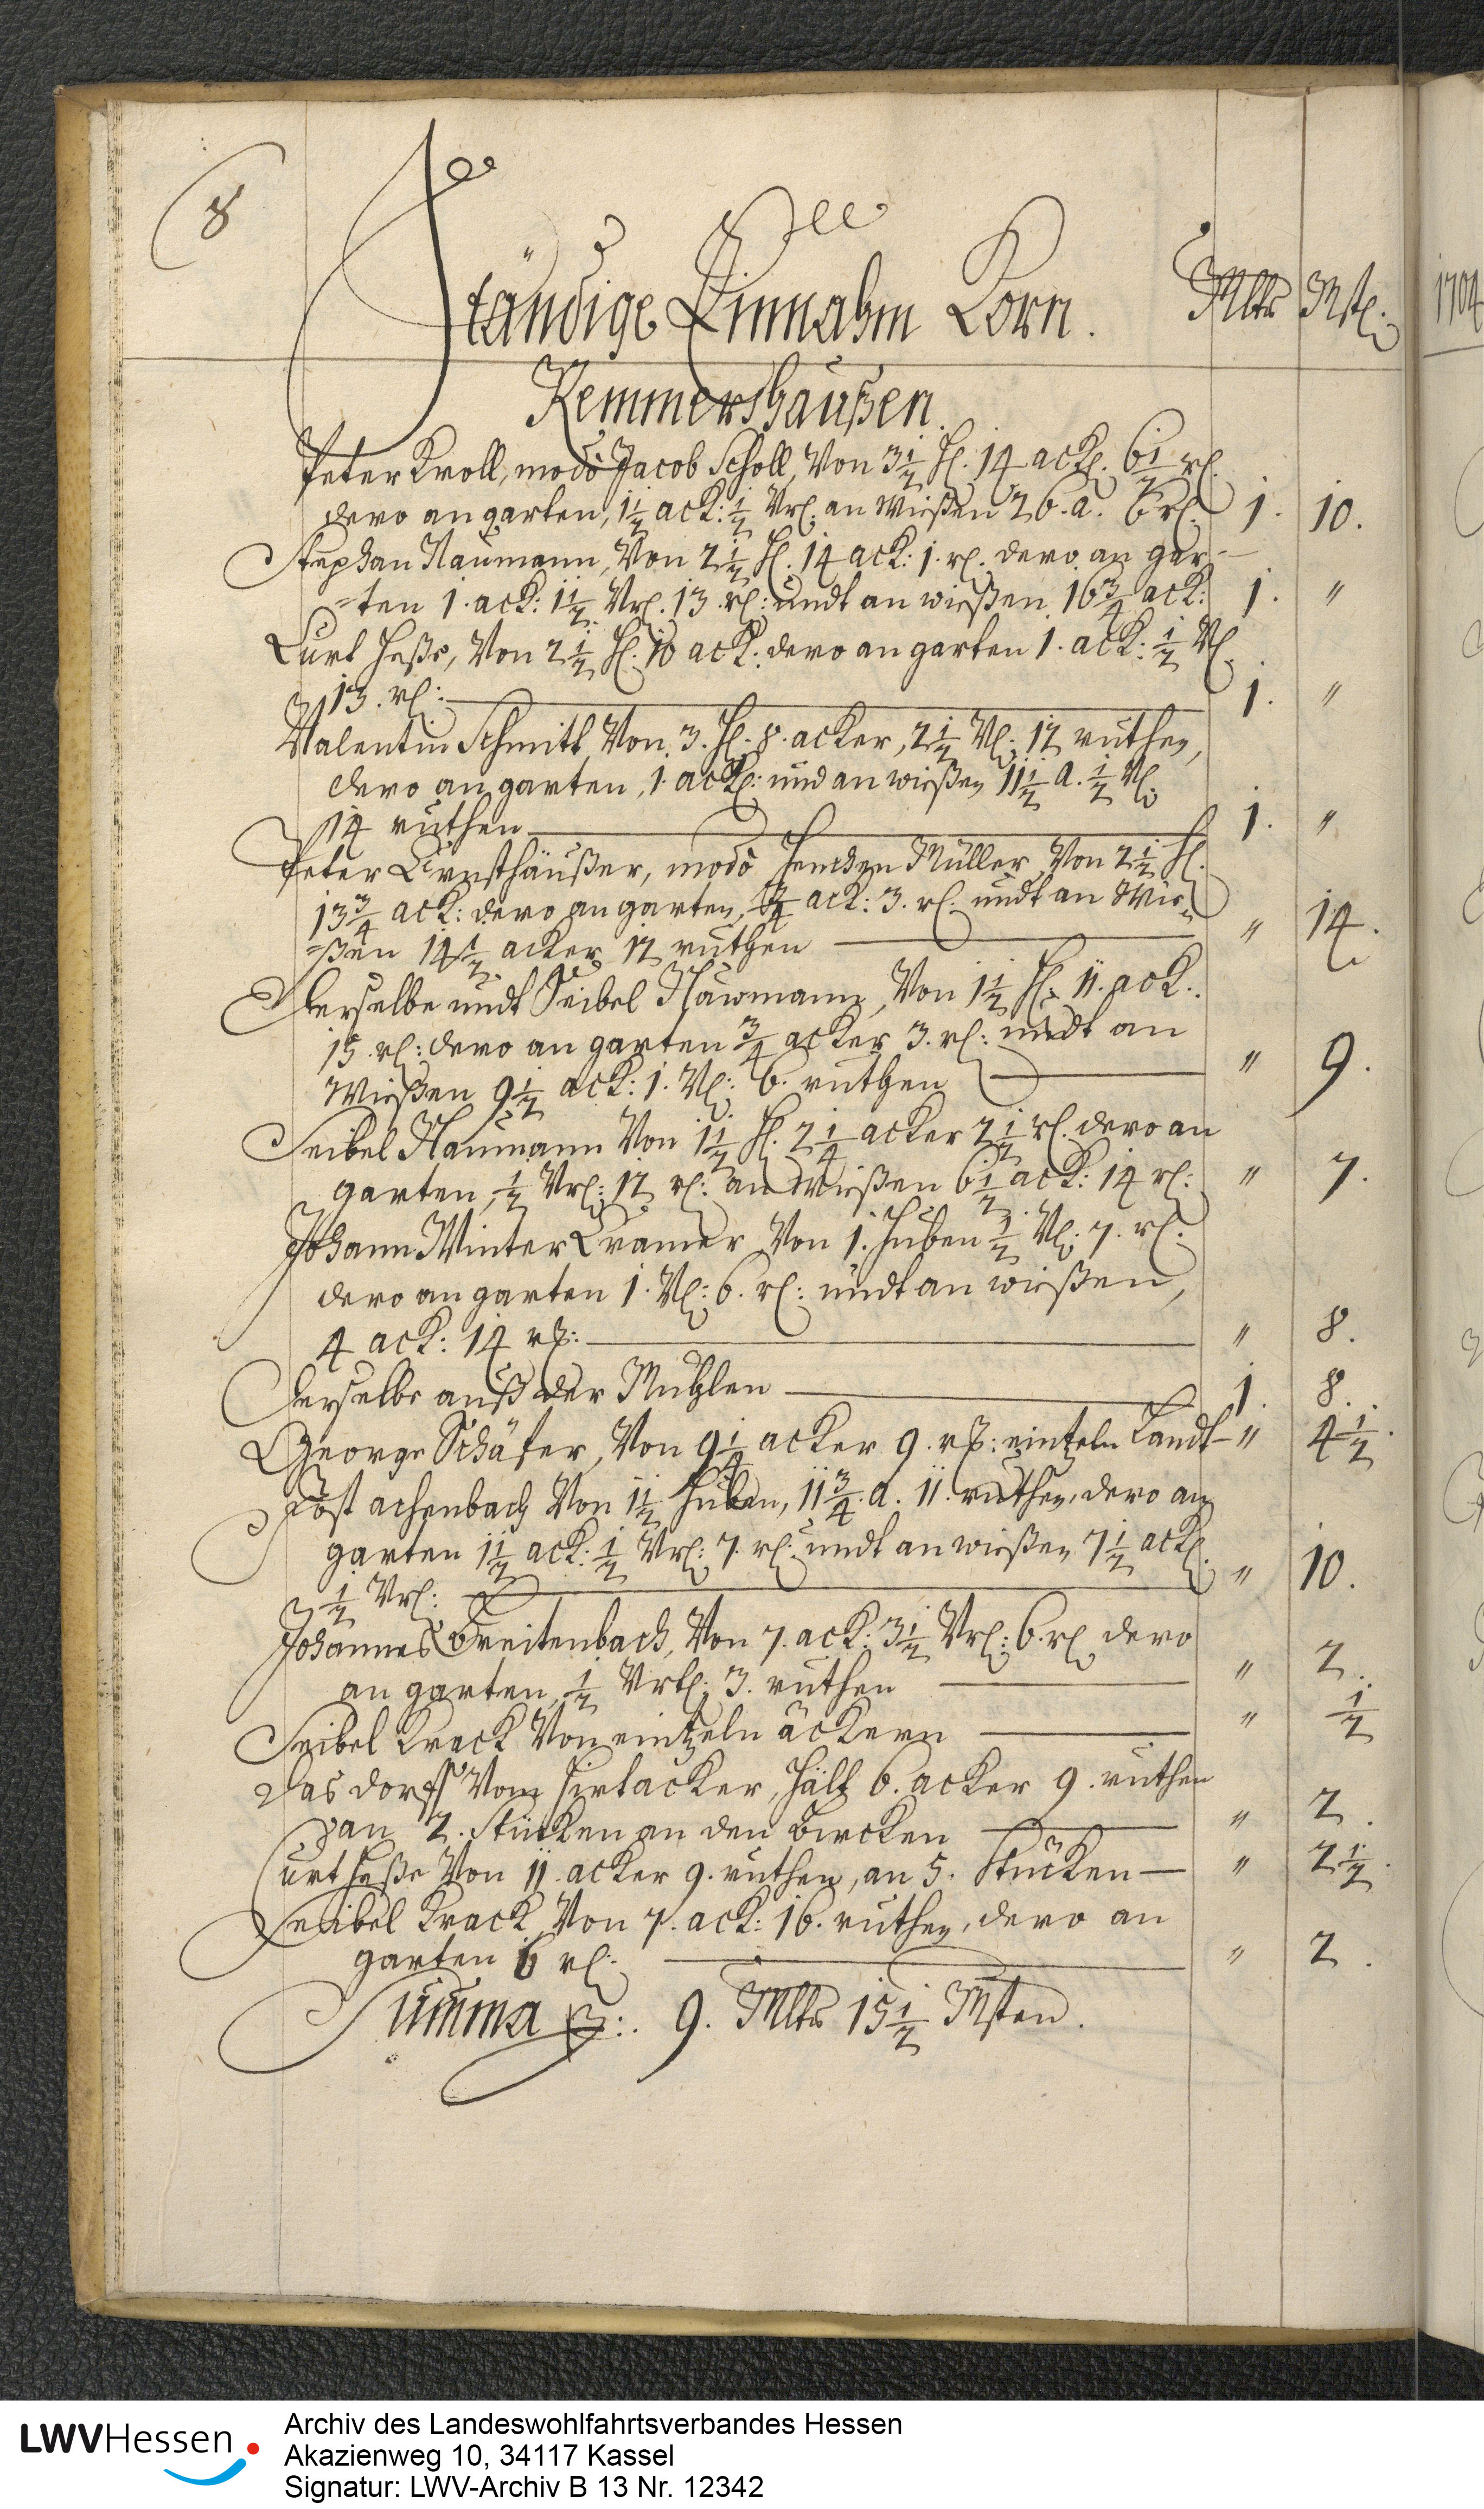 8
Ständige Einnahm Korn. Mltr Mst.
1704
Kemmershaußen.
Peter Kroll, modò Jacob Scholl, Von 3½ H. 14 ack. 6½ rt.
dero an garten, 1½ ack: ½ Vrt. an Wießen 26. a. 6 rt. 1. 10.
Stephan Naumann, Von 2½ H. 14 ack: 1. rt. dero an gar-
=ten 1. ack: 1½ Vrt. 13 rt: undt an wießen 16¾ ack: 1. "
Curt Heße, Von 2½ H. 10 ack: dero an garten 1. ack: ½ Vt.
13. rt: 1. "
Valentin Schmitt, Von 3. H. 8. acker, 2½ Vt. 12 ruthen,
dero an garten, 1. ack: und an wießen 11½ a. ½ Vt.
14 ruthen 1. "
Peter Ernsthäußer, modò Henchen Müller, Von 2½ H.
13¾ ack: dero an garten, ¾ ack: 3. rt: undt an Wie-
=ßen 14½ acker 12 ruthen " 14.
Derselbe undt Seibel Nauwmann, Von 1½ H. 11. ack.
15. rt: dero an garten ¾ acker 3. rt: undt an
Wießen 9½ ack: 1. Vt: 6. ruthen " 9.
Seibel Naumann Von 1½ H. 2¼ acker 2½ rt. dero an
garten, ½ Vrt: 12 rt: an Wießen 6½ ack: 14 rt: " 7.
Johann Winter Cramer Von 1. Huben ½ Vt: 7. rt.
dero an garten 1. Vt: 6. rt: undt an wießen,
4 ack: 14 rt: " 8.
Derselbe auß der Muhlen 1. 8.
George Schäfer, Von 9¼ acker 9. rt: eintzeln Landt " 4½.
Jost achenbach Von 1½ Huben, 11¾. a. 11. ruthen, dero an
garten 1½ ack: ½ Vrt: 7. rt: undt an wießen 7½ ack.
½ Vrt: " 10.
Johannes Breitenbach, Von 7. ack: 3½ Vrt: 6. rt dero
an garten, ½ Vrtl: 3. ruthen " 2.
Seibel Krack Von eintzeln äckern " ½
Das dorff Vom Hirtacker, hält 6. acker 9. ruthen
an 2. Stücken an den Bircken " 2.
Curt Heße Von 11. acker 9. ruthen, an 5. Stücken " 2½.
Seibel Krack Von 7. ack: 16. ruthen, dero an
garten 6 rt: " 2.
Summa 9. Mltr 15½ Msten.
LWVHessen
Archiv des Landeswohlfahrtsverbandes Hessen
Akazienweg 10, 34117 Kassel
Signatur: LWV-Archiv B 13 Nr. 12342